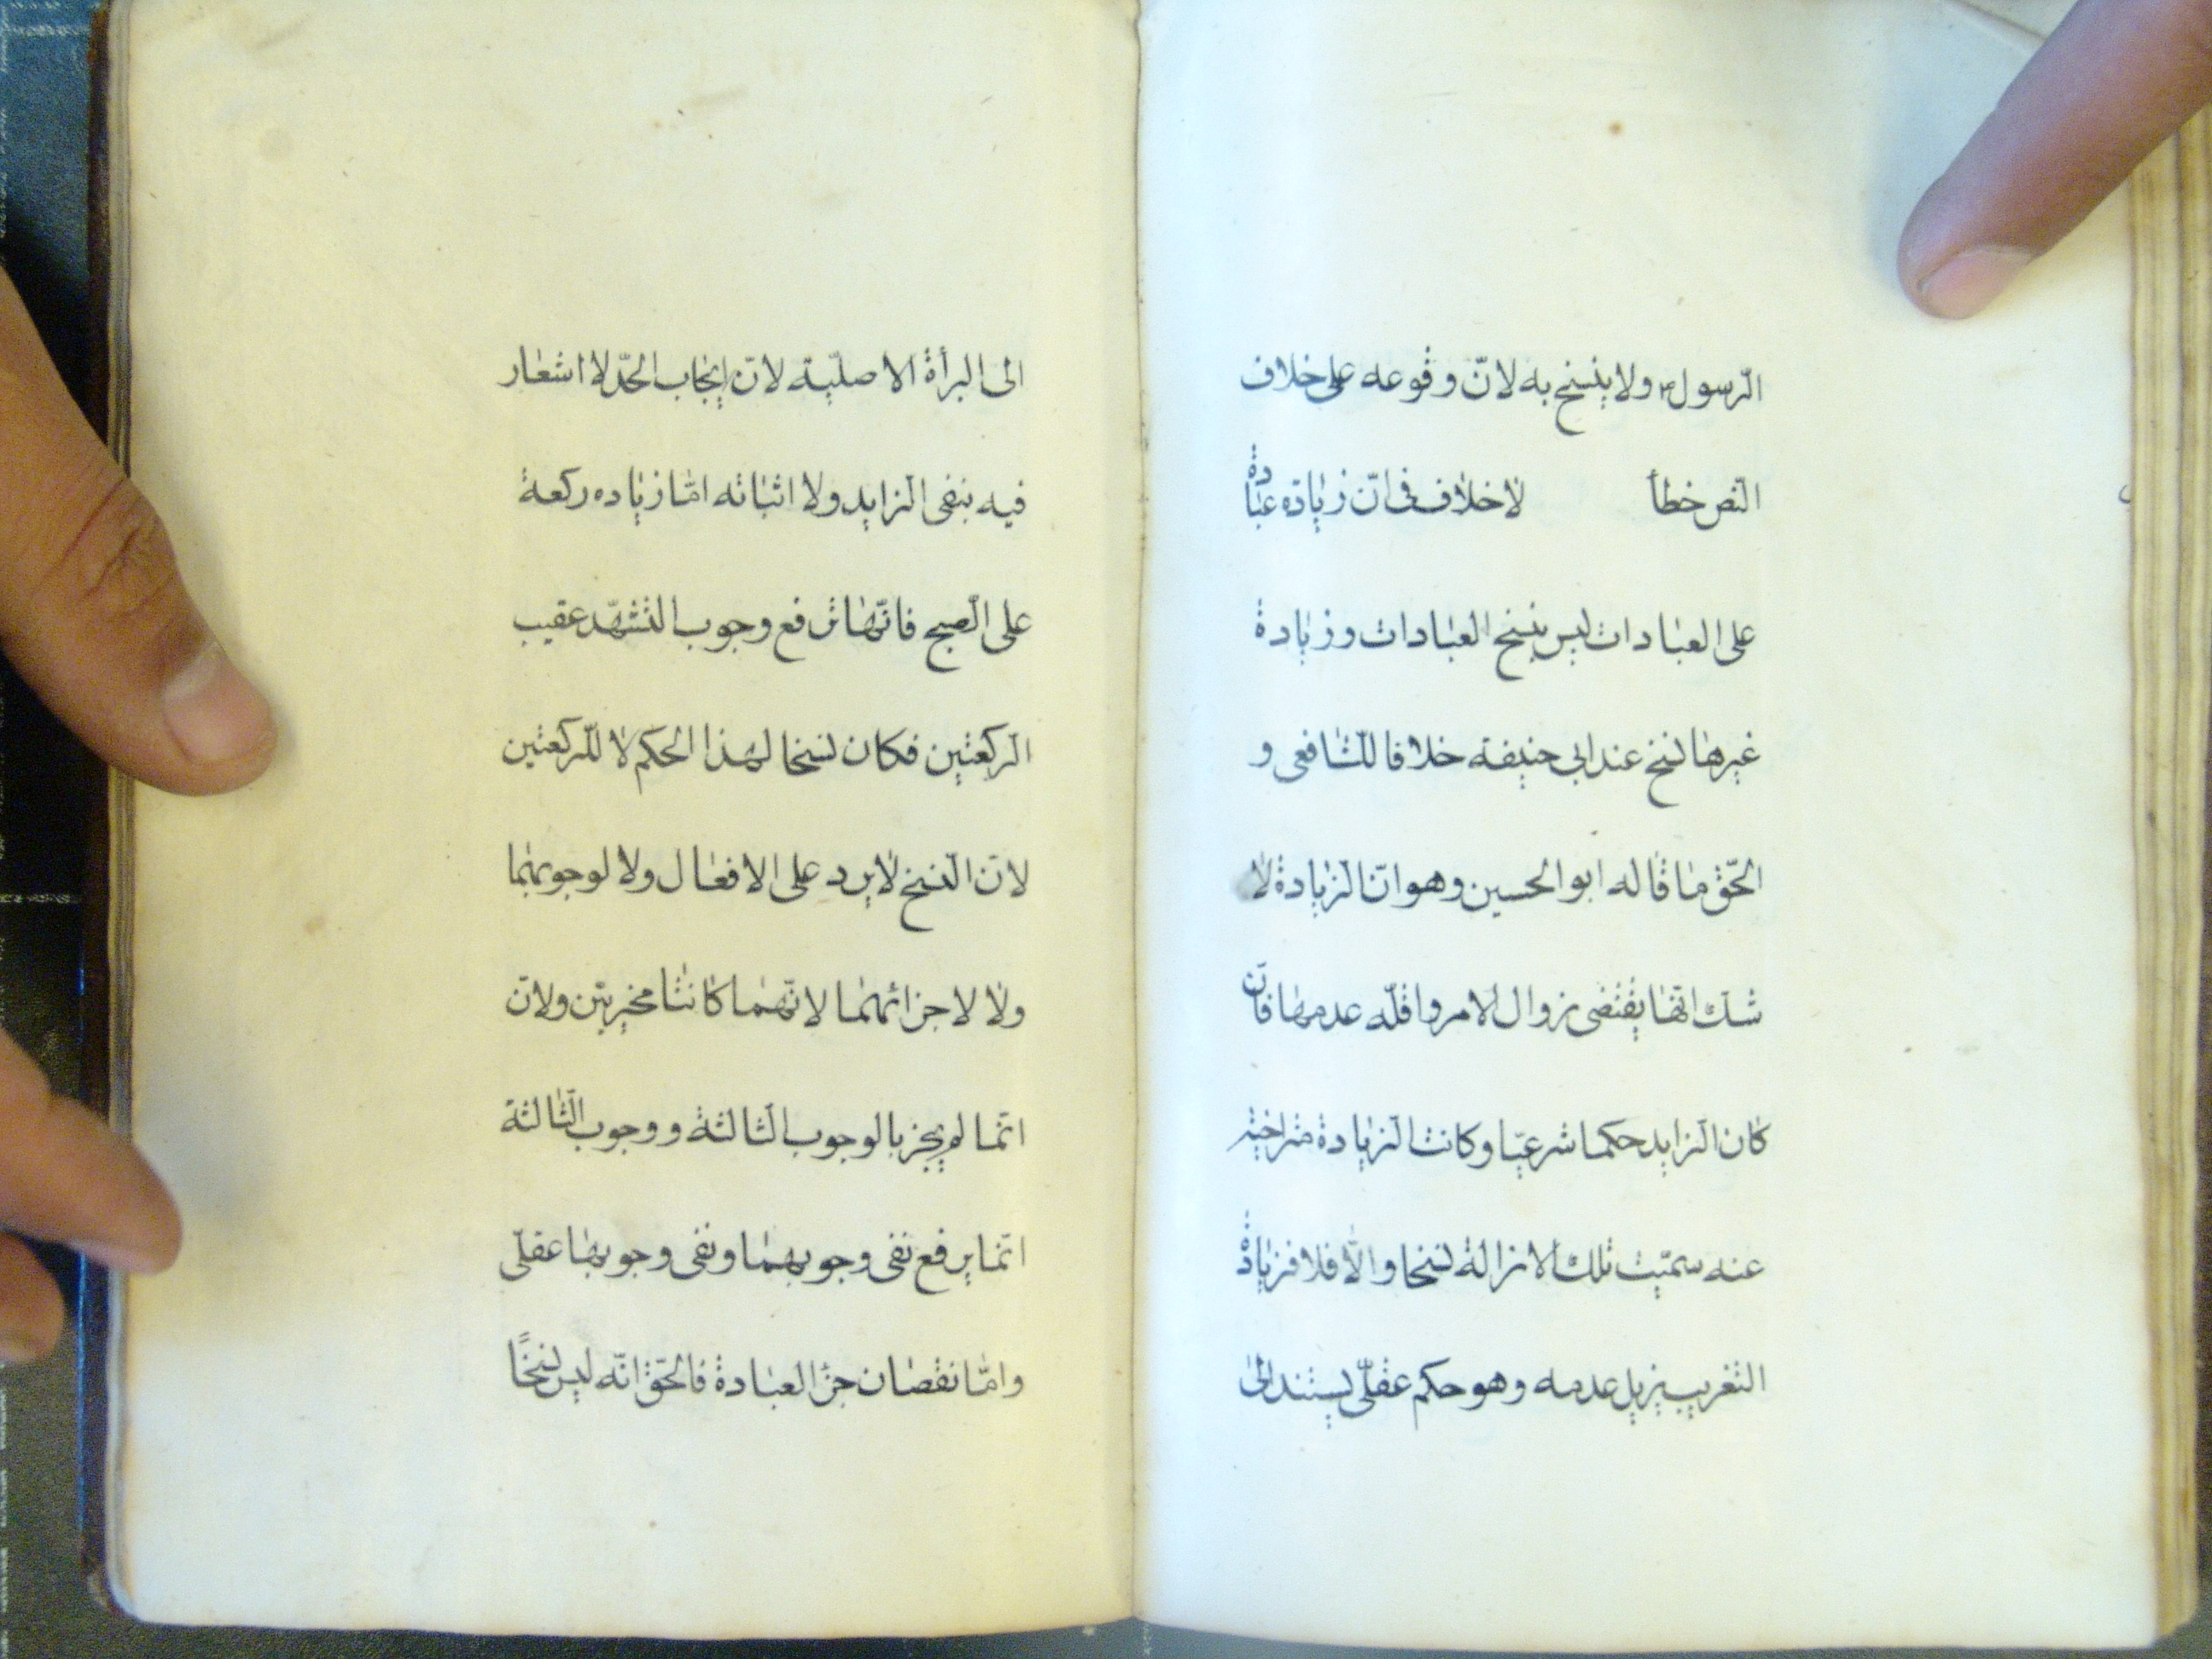 الرّسول ولا ينسخ به لانّ وقوعه على خلاف
النّص خطأ لا خلاف فى انّ زيادة عبادة
على العبادات ليس بنسخ العبادات وزيادة
غيرها نسخ عند ابى حنيفة خلافا للشّافعى و
الحقّ ما قاله ابو الحسين وهو انّ الزيادة لا
شكّ انّها يقتضى زوال الامر واقلّه عدمها فان
كان الزّايد حكما شرعيّا وكانت الزّيادة متراخية
عنه سمّيت تلك الازالة نسخا والّا فلا فزيادة
التغريب يزيل عدمه وهو حكم عقلىّ يستند الى
الى البرأة الاصليّة لانّ ايجاب الحدّ لا اشعار
فيه بنفى الزّايد ولا اثباته امّا زياده ركعة
على الصّبح فانّها ترفع وجوب التشهّد عقيب
الرّكعتين فكان نسخا لهذا الحكم لا للرّكعتين
لانّ النّسخ لا يرد على الافعال ولا لوجوبهما
ولا لاجزائهما لانّهما كانتا مخبريتن ولانّ
انّما لم يجز بالوجوب الثّالثة ووجوب الثّالثة
انّما يرفع نفى وجوبهما ونفى وجوبها عقلىّ
وامّا نقصان جزء العبادة فالحقّ انّه ليس نسخًا